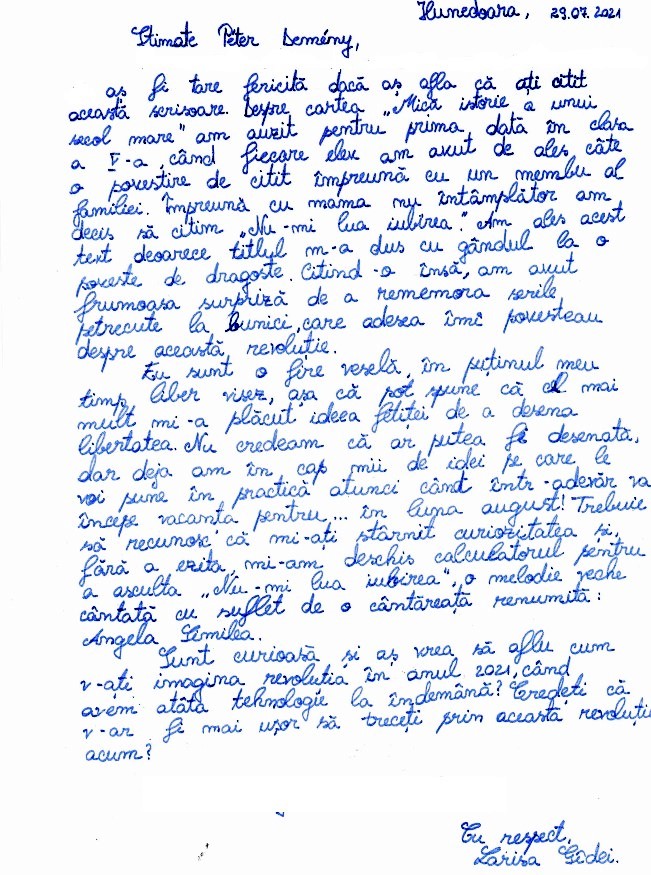 Hunedoara, 29.07.2021
Stimate Péter Demény,
aș fi tare fericită dacă aș afla că ați citit
această scrisoare. Despre cartea „Mică istorie a unui
secol mare" am auzit pentru prima dată în clasa
a V-a, când fiecare elev am avut de ales câte
o povestire de citit împreună cu un membu al
familiei. Împreună cu mama nu întâmplător am
decis să citim „Nu-mi lua iubirea". Am ales acest
text deoarece titlul m-a dus cu gândul la o
poveste de dragoste. Citind-o însă, am avut
frumoasa surpriză de a rememora serile
petrecute la bunici, care adesea îmi povesteau
despre această revoluție.
Eu sunt o fire veselă, în puținul meu
timp liber visez, așa că pot spune că cel mai
mult mi-a plăcut ideea fetiței de a desena
libertatea. Nu credeam că ar putea fi desenată,
dar deja am în cap mii de idei pe care le
voi pune în practică atunci când într-adevăr va
începe vacanta pentru... în luna august! Trebuie
să recunosc că mi-ați stârnit curiozitatea și,
fără a ezita, mi-am deschis calculatorul pentru
a asculta „Nu-mi lua iubirea", o melodie veche
cântată cu suflet de o cântăreață renumită:
Angela Similea.
Sunt curioasă și aș vrea să aflu cum
v-ați imagina revoluția în anul 2021, când
avem atâta tehnologie la îndemână? Credeți că
v-ar fi mai ușor să treceți prin această revoluție
acum?
Cu respect,
Larisa Gîdei.